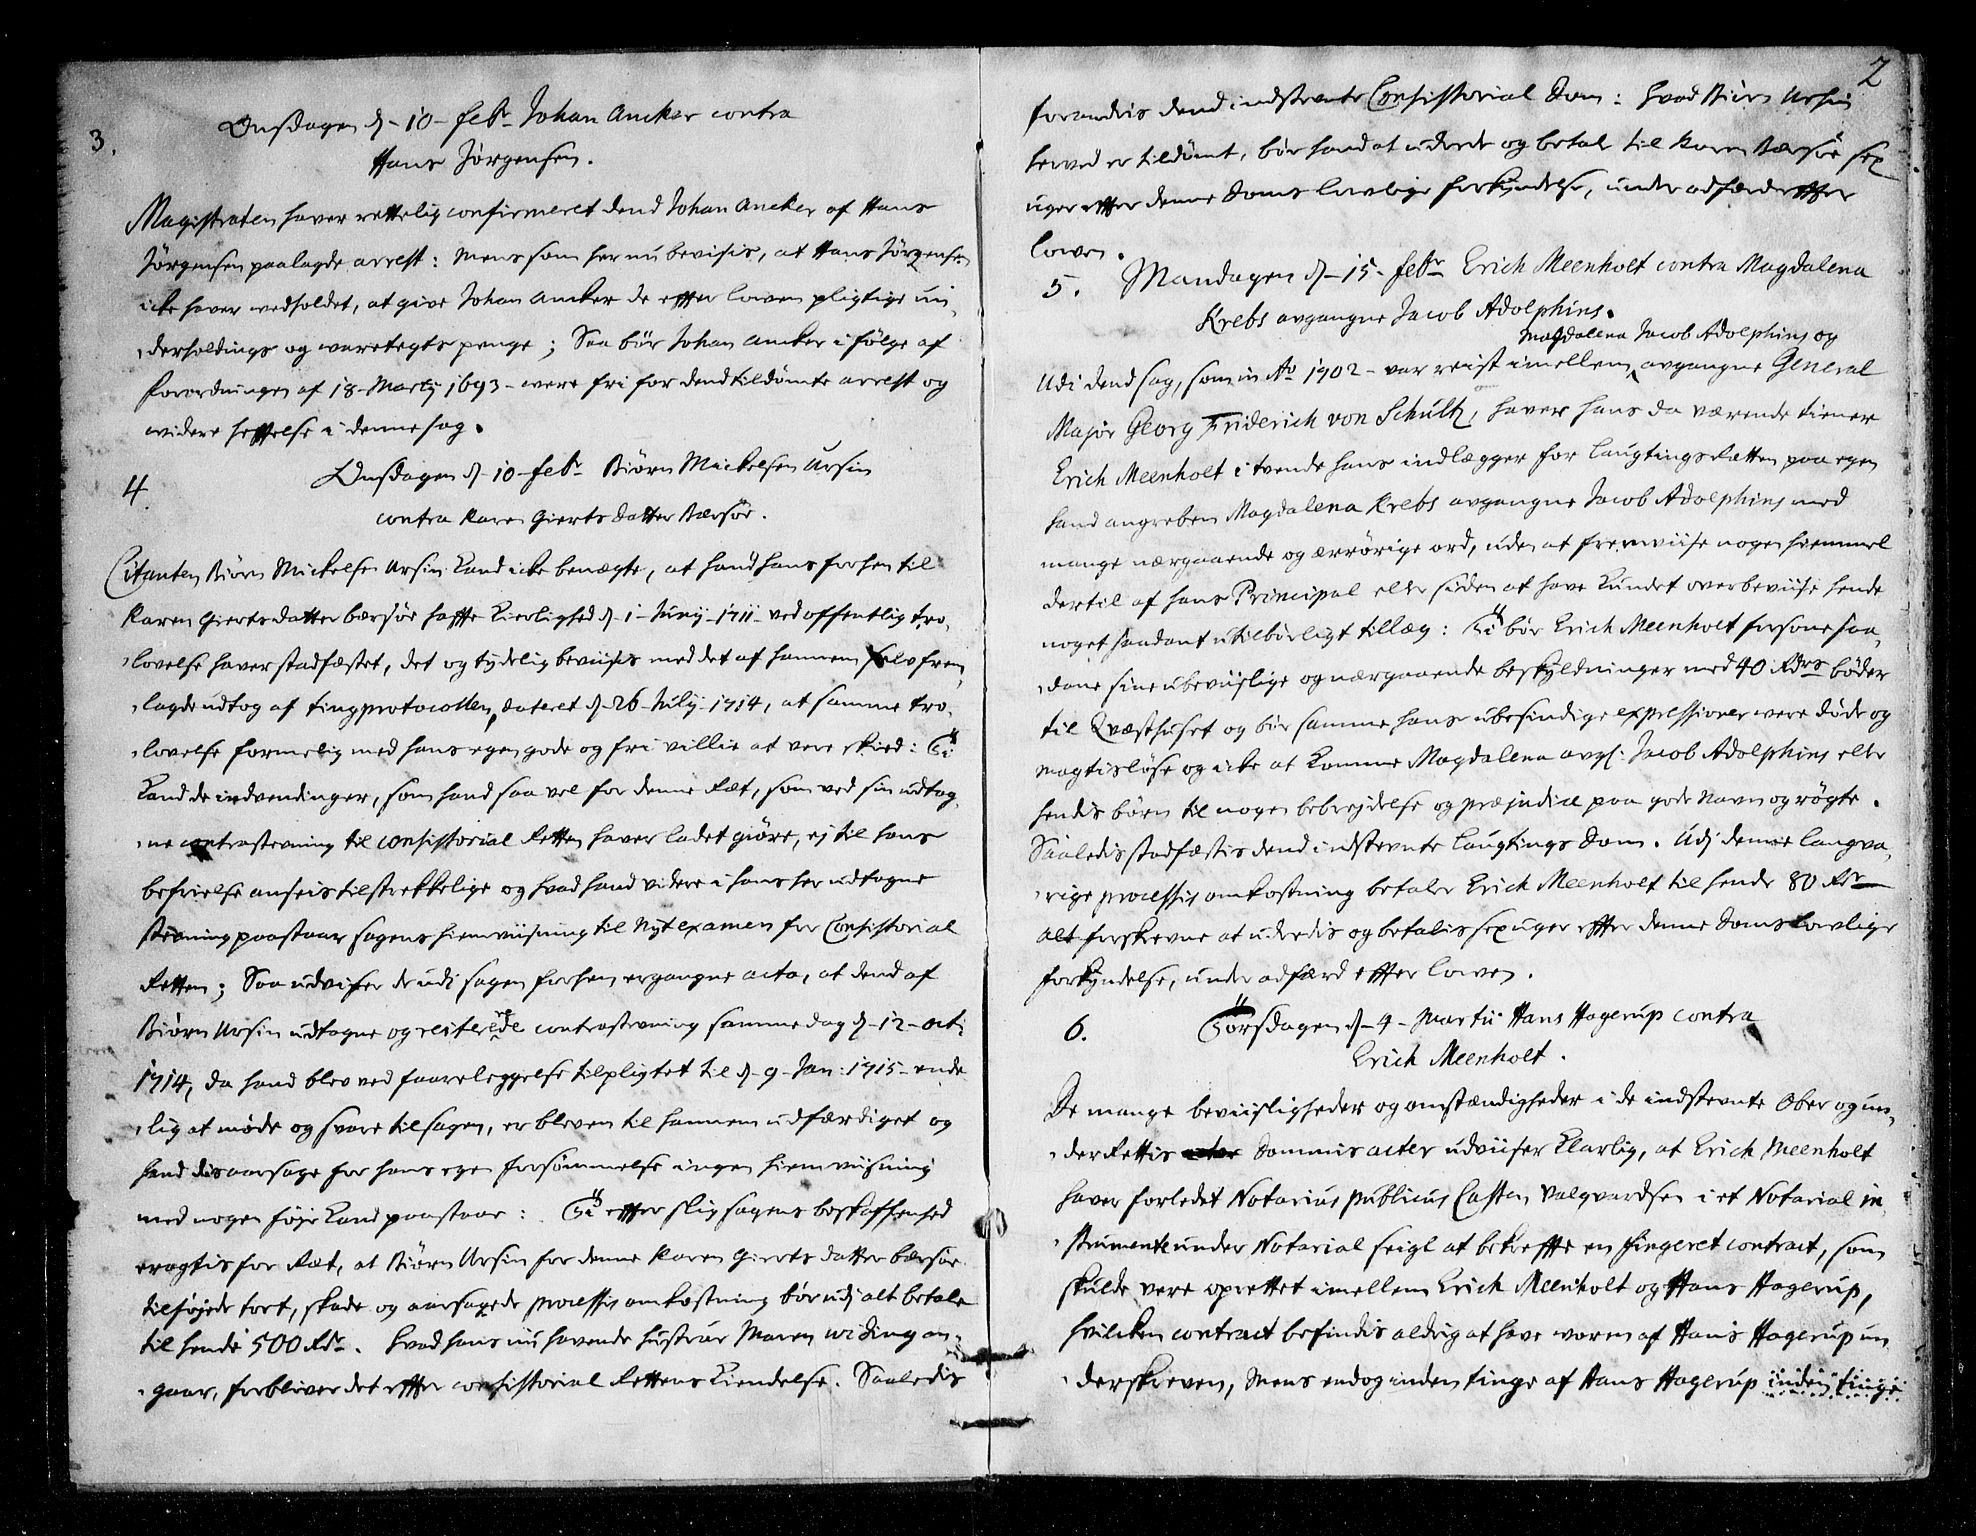 3.
Onsdagen d. 10. febr. Johan Ancker contra
Hans Jörgensen.
Magistraten haver rettelig confirmeret dend Johan Ancker af Hans
Jörgensen paalagde arrest: mens som her nu bevisis, at Hans Jörgensen
icke haver vedholdet, at give Johan Ancker de effter lowen pligtige un¬
derholdings og waretegts penge; Saa bör Johan Ancker i fölge af
forordningen af 13. Martij 1693. were fri for dend tildömte arrest og
widere hefftelse i denne sag.
4.
Onsdagen d. 10. febr. Biörn Mickelsen Ursin
contra Karen Giertsdatter Bærsöe.
Citanten Biörn Mickelsen Ursin kand icke benægte, at hand hans forhen til
Karen Giertsdatter bærsöe haffte kierlighed d. 1. Junij 1711. ved offentlig tro¬
lovelse haver stadfæstet, det og tydelig beviises med det af hannem selv frem¬
lagde udtog af tingprotocollen, dateret d. 26. Julij 1714, at samme tro¬
lovelse formelig med hans egen gode og fri villie at vere skied: Ti
kand de indvendinger, som hand saa vel for denne Ræt, som ved sin udtag¬
ne contrastevning til consistorial Retten haver ladet giöre, ej til hans
befrielse anseis tilstrekkelige og hvad hand videre i hans her udtagne
stevning paastaar sagens hiemviisning til nyt examen for Consistorial
Retten; Saa udviser de udi sagen forhen ergangne acta, at dend af
Biörn Ursin udtagne og reiterede contrastevning samme dag d. 12. oct:
1714, da hand blev ved faareleggelse tilpligtet til d. 9. Jan: 1715. ende¬
lig at möde og svare til sagen, er bleven til hannem udfærdiget og
hand dis aarsage for hans egen forsömmelse ingen hiemviisning
med nogen föje kand paastaae: Ti effter slig sagens beskaffenhed
eragtis for Ræt, at Biörn Ursin for denne Karen Giertsdatter bærsöe
tilföjede tort, skade og aarsagede processis omkostning bör udj alt betale
til hende 500 Rdr. Hvad hans nu havende hustrue Maren Widing an¬
gaar, forbliver det effter consistorial Rettens kiendelse. Saaledis
2
forandris dend indstevnte Consistorial Dom: hvad Biörn Ursin
herved er tildömt, bör hand at udrede og betale til Karen Bærsöe sex
uger effter denne Doms lovlige forkyndelse, under adfærd effter
lowen.
5. Mandagen d. 15. febr. Erich Meenholt contra Magdalena
Krebs avgangne Jacob Adolphius.
Magdalena Jacob Adolphius og
Udi dend sag, som in Ao 1702. var reist imellem avgangne General
Major Georg Friderich von Schultz, haver hans da værende tiener
Erich Meenholt i tvende hans indlægger for Laugtings Retten paa egen
hand angreben Magdalena Krebs avgangne Jacob Adolphius med
mange nærgaaende og ærrörige ord, uden at fremviise nogen hiemmel
dertil af hans Principal eller siden at have kundet overbeviise hende
noget saadant utilbörligt tillæg: Ti bör Erich Meenholt forsone saa¬
dane sine ubeviislige og nærgaaende beskyldninger med 40 Rdrs böder
til Qvæsthuset og bör samme hans ubesindige expressioner were döde og
magtislöse og icke at komme Magdalena avgl: Jacob Adolphius eller
hendis börn til nogen bebrejdelse og præjudice paa gode Navn og rögte.
Saaledis stadfæstis dend indstevnte Laugtings Dom. Udj denne langva¬
rige processis omkostning betaler Erich Meenholt til hende 80 Rdr
alt forskrevne at uderdis og betalis sex uger effter denne Doms lovlige
forkyndelse, under adfærd effter lowen.
6. Torsdagen d. 4. Martii Hans Hagerup contra
Erich Meenholt.
De mange beviisligheder og omstændigheder i de indstevnte Ober og un¬
der Rettis Dommis acter udviiser klarlig, at Erich Meenholt
haver forledet Notarius publicus Casten Valgvardsen i et Notarial in¬
strumente under Notarial seigl at bekreffte en fingeret contract, som
skulde vere oprettet imellem Erich Meenholt og Hans Hagerup,
hvilcken contract befindis aldrig at have waren af Hans Hagerup un¬
derskreven, mens endog inden tinge af Hans Hagerup inden tinge